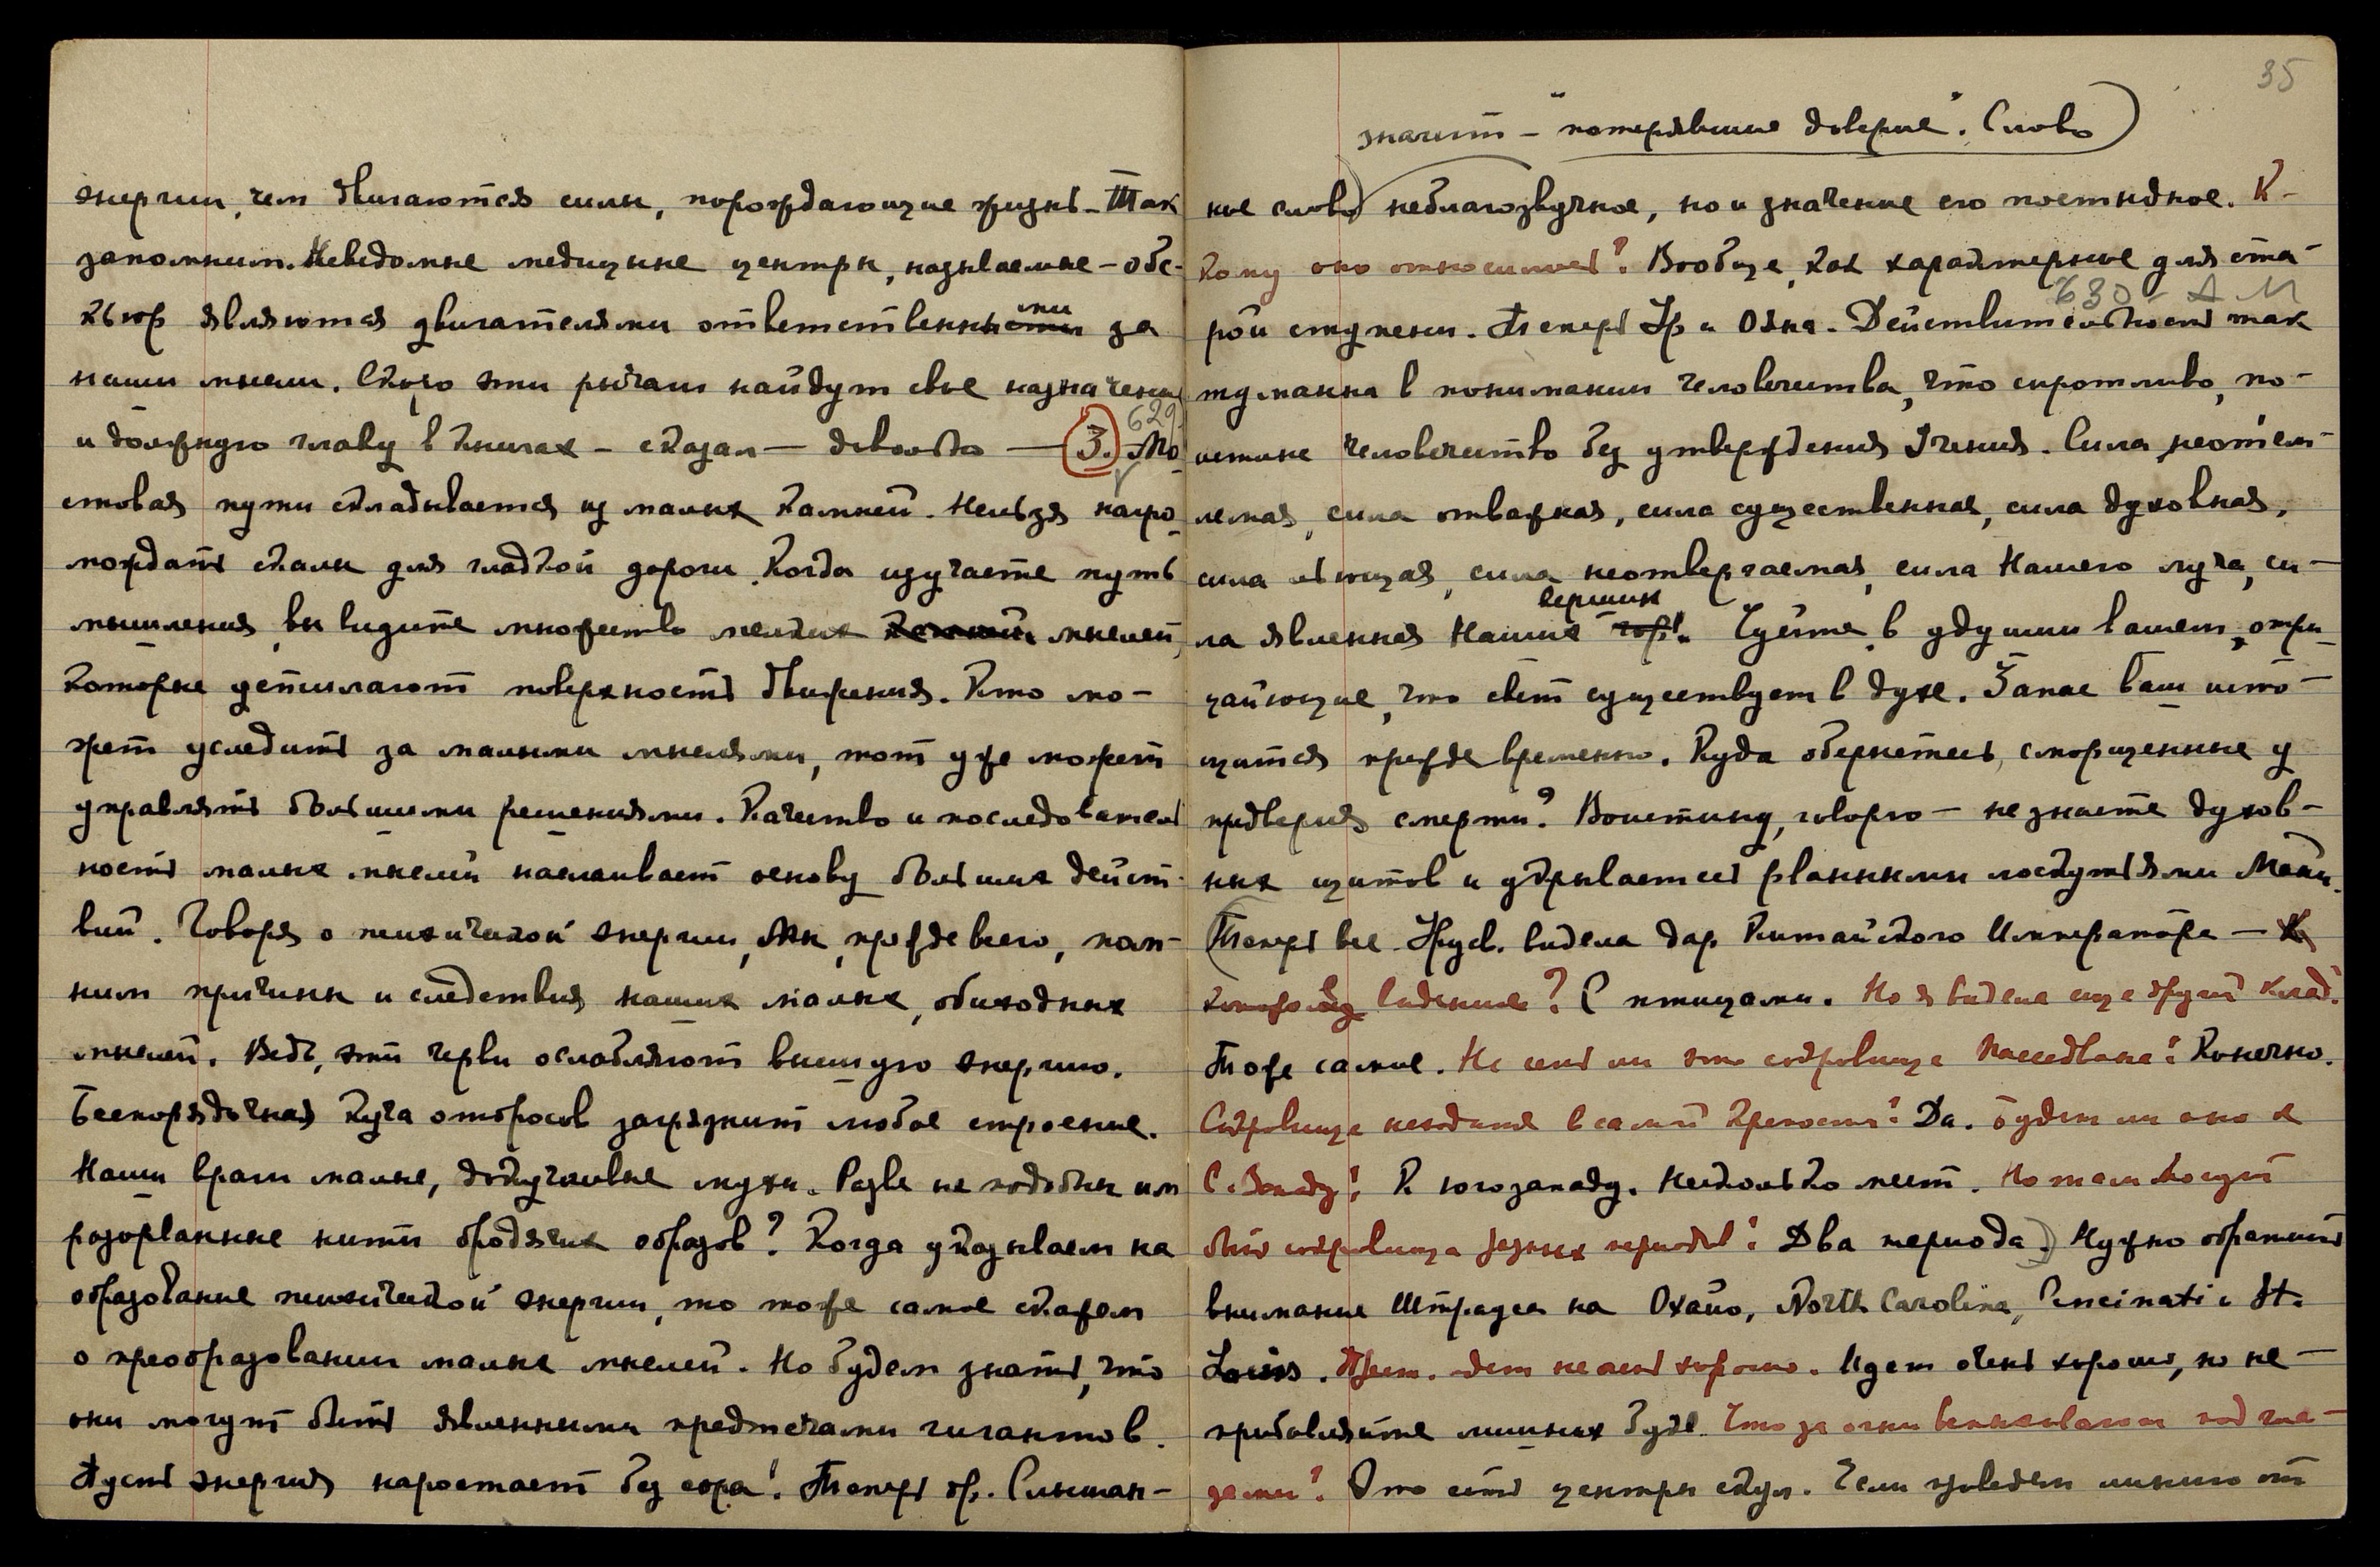 энергии, чем двигаются силы, порождающие жизнь – Так
запомним. Неведомые медицине центры, называемые – обс-
кьюр являются двигателями ответственными за
наши мысли. Скоро эти рычаги найдут свое назначение
и должную главу в книгах – сказал – довольно – 3. 629. Мо-
стовая пути складывается из малых камней. Нельзя нагро-
мождать скалы для гладкой дороги. Когда изучаете путь
мышления, вы видите множество мелких мыслей,
которые устилают поверхность движения. Кто мо-
жет уследить за малыми мыслями, тот уже может
управлять большими решениями. Качество и последователь
ность малых мыслей наслаивает основу больших дейст-
вий. Говоря о психической энергии, Мы, прежде всего, пом-
ним причины и следствия наших малых, обиходных
мыслей. Ведь, эти черви ослабляют высшую энергию.
Беспорядочная куча отбросов загрязнит любое строение.
Наши враги малые, докучливые мухи. Разве не подобны им
разорванные нити бродячих образов? Когда указываем на
образование психической энергии, то тоже самое скажем
о преобразовании малых мыслей. Но будем знать, что
они могут быть явленными предтечами гигантов.
Пусть энергия наростает без сора! Теперь др. Слышан-
35
значит – "потерявшие доверие". Слово
ное слово неблагозвучное, но и значение его постыдное. К-
кому оно относилось? Вообще, как характерное для ста-
630 – А М
рой ступени. Теперь Ур и Ояна. Действительность так
туманна в понимании человечества, что сиротливо, по-
истине человечество без утверждения Учения. Сила неотъем-
лемая, сила отважная, сила существенная, сила духовная,
сила сила неотвергаемая, сила Нашего луча, си-
ла явленная Наших вершин Чуйте, в удушии вашем, отри-
цающие, что свет существует в духе. Запас ваш исто-
щится преждевременно. Куда обернетесь, сморщенные у
предверия смерти? Воистину, говорю – не знаете духов-
ных щитов и укрываетесь рванными лоскутьями Майи.
Теперь все Урусв. видела дар Китайского Императора –
видение? С птицами. Но я видела еще другой клад.
Тоже самое. Не есть ли это сокровище наследване? Конечно.
Сокровище находится в самой крепости? Да. Будет ли оно к
С. Западу? К югозападу. Несколько мест. Но там могут
быть сокровища разных периодов? Два периода. Нужно обратить
внимание Штрауса на Охайо, North Carolina, Cincinati и St.
Louis. идет не очень хорошо. Идет очень хорошо, но не –
прибавляйте лишних Будд. Что за огни вспыхивают под гла-
зами? Это есть центры скул. Если проведем линию от